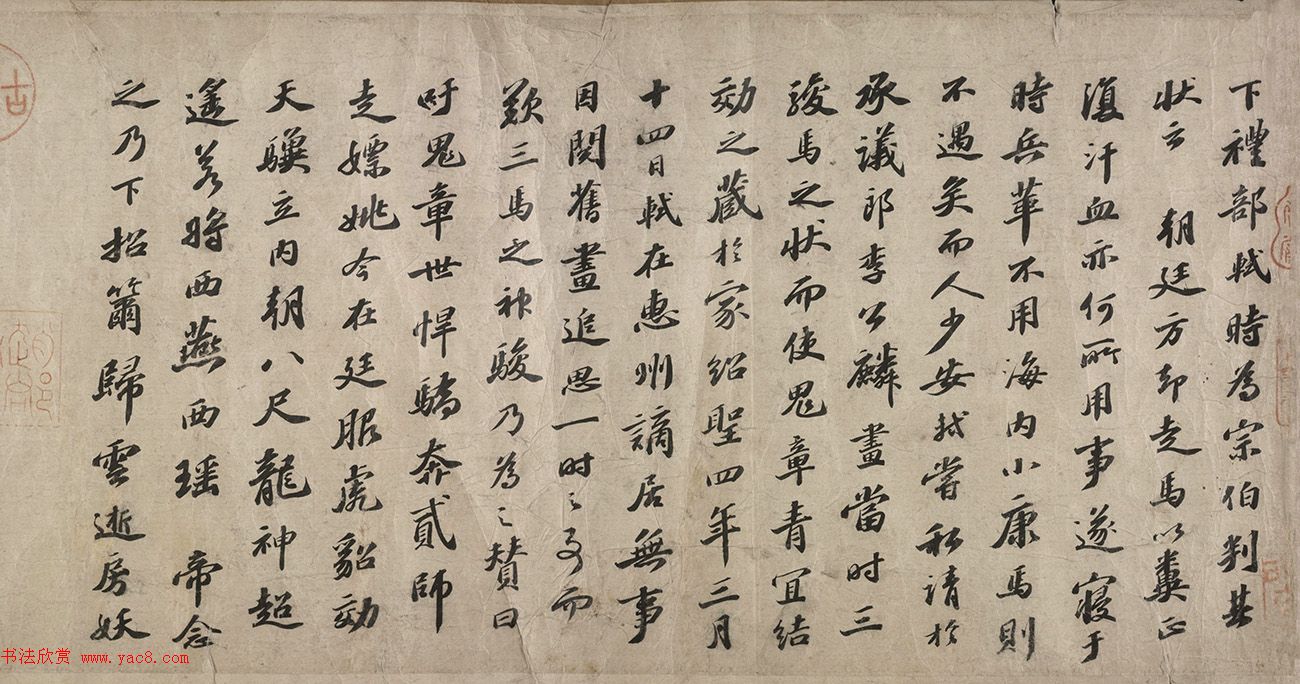 下禮部軾時為宗伯判其
状云 朝廷方却走馬以糞正
復汗血亦何所用事遂寢于
時兵革不用海内小康馬則
不遇矣而人少安軾嘗私請於
承議郎李公麟畫當时三
駿馬之状而使鬼章青宜结
効之藏於家紹聖四年三月
十四日軾在惠州謫居無事
因閱舊畫追思一时之事而
歎三馬之神駿乃為之贊曰
吁鬼章世悍驕奔貳師
走嫖姚今在廷服虎貂効
天驥立内朝八尺龍神超
遙若將西燕西瑶 帝念
之乃下招籋歸雲逝房妖
古
书法欣赏 www.yac8.com